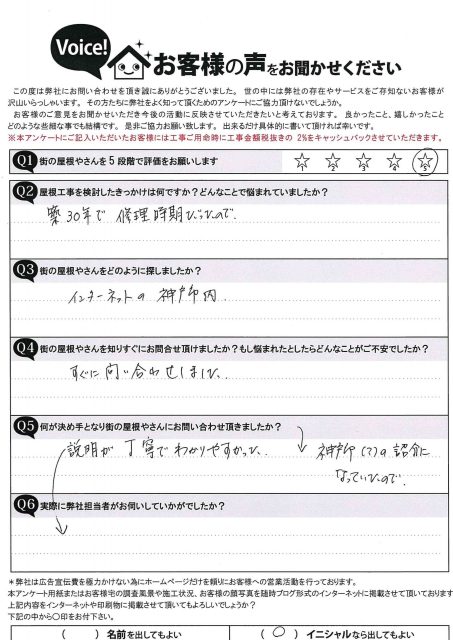 Voice!
お客様の声をお聞かせください
この度は弊社にお問い合わせを頂き誠にありがとうございました。 世の中には弊社の存在やサービスをご存知ないお客様が
沢山いらっしゃいます。 その方たちに弊社をよく知って頂くためのアンケートにご協力頂けないでしょうか。
お客様のご意見をお聞かせいただき今後の活動に反映させていただきたいと考えております。 良かったこと、嬉しかったこと
どのような些細な事でも結構です。 是非ご協力お願い致します。 出来るだけ具体的に書いて頂ければ幸いです。
※本アンケートにご記入いただいたお客様には工事ご用命時に工事金額税抜きの 2%をキャッシュバックさせていただきます。
Q1 街の屋根やさんを5段階で評価をお願いします
1 2 3 4 5
Q2 屋根工事を検討したきっかけは何ですか？どんなことで悩まれていましたか？
築30年で 修理時期だったので.
Q3 街の屋根やさんをどのように探しましたか？
インターネットの 神戸市内.
Q4 街の屋根やさんを知りすぐにお問合せ頂けましたか？もし悩まれたとしたらどんなことがご不安でしたか？
すぐに 問い合わせしました.
Q5 何が決め手となり街の屋根やさんにお問い合わせ頂きましたか？
説明が 丁寧で わかりやすかった.
神戸市(?)の 認介に
なっていたので.
Q6 実際に弊社担当者がお伺いしていかがでしたか？
＊弊社は広告宣伝費を極力かけない為にホームページだけを頼りにお客様への営業活動を行っております。
本アンケート用紙またはお客様宅の調査風景や施工状況、お客様の顔写真を随時ブログ形式のインターネットに掲載させて頂いております
上記内容をインターネットや印刷物に掲載させて頂いてもよろしいでしょうか？
下記の中から〇印をお付下さい。
( ) 名前を出してもよい
( ○ ) イニシャルなら出してもよい